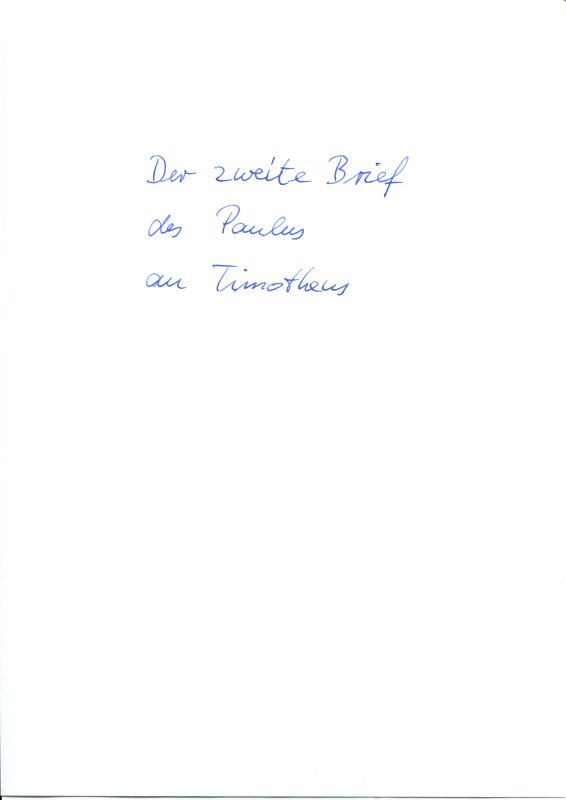 Der zweite Brief
des Paulus
an Timotheus